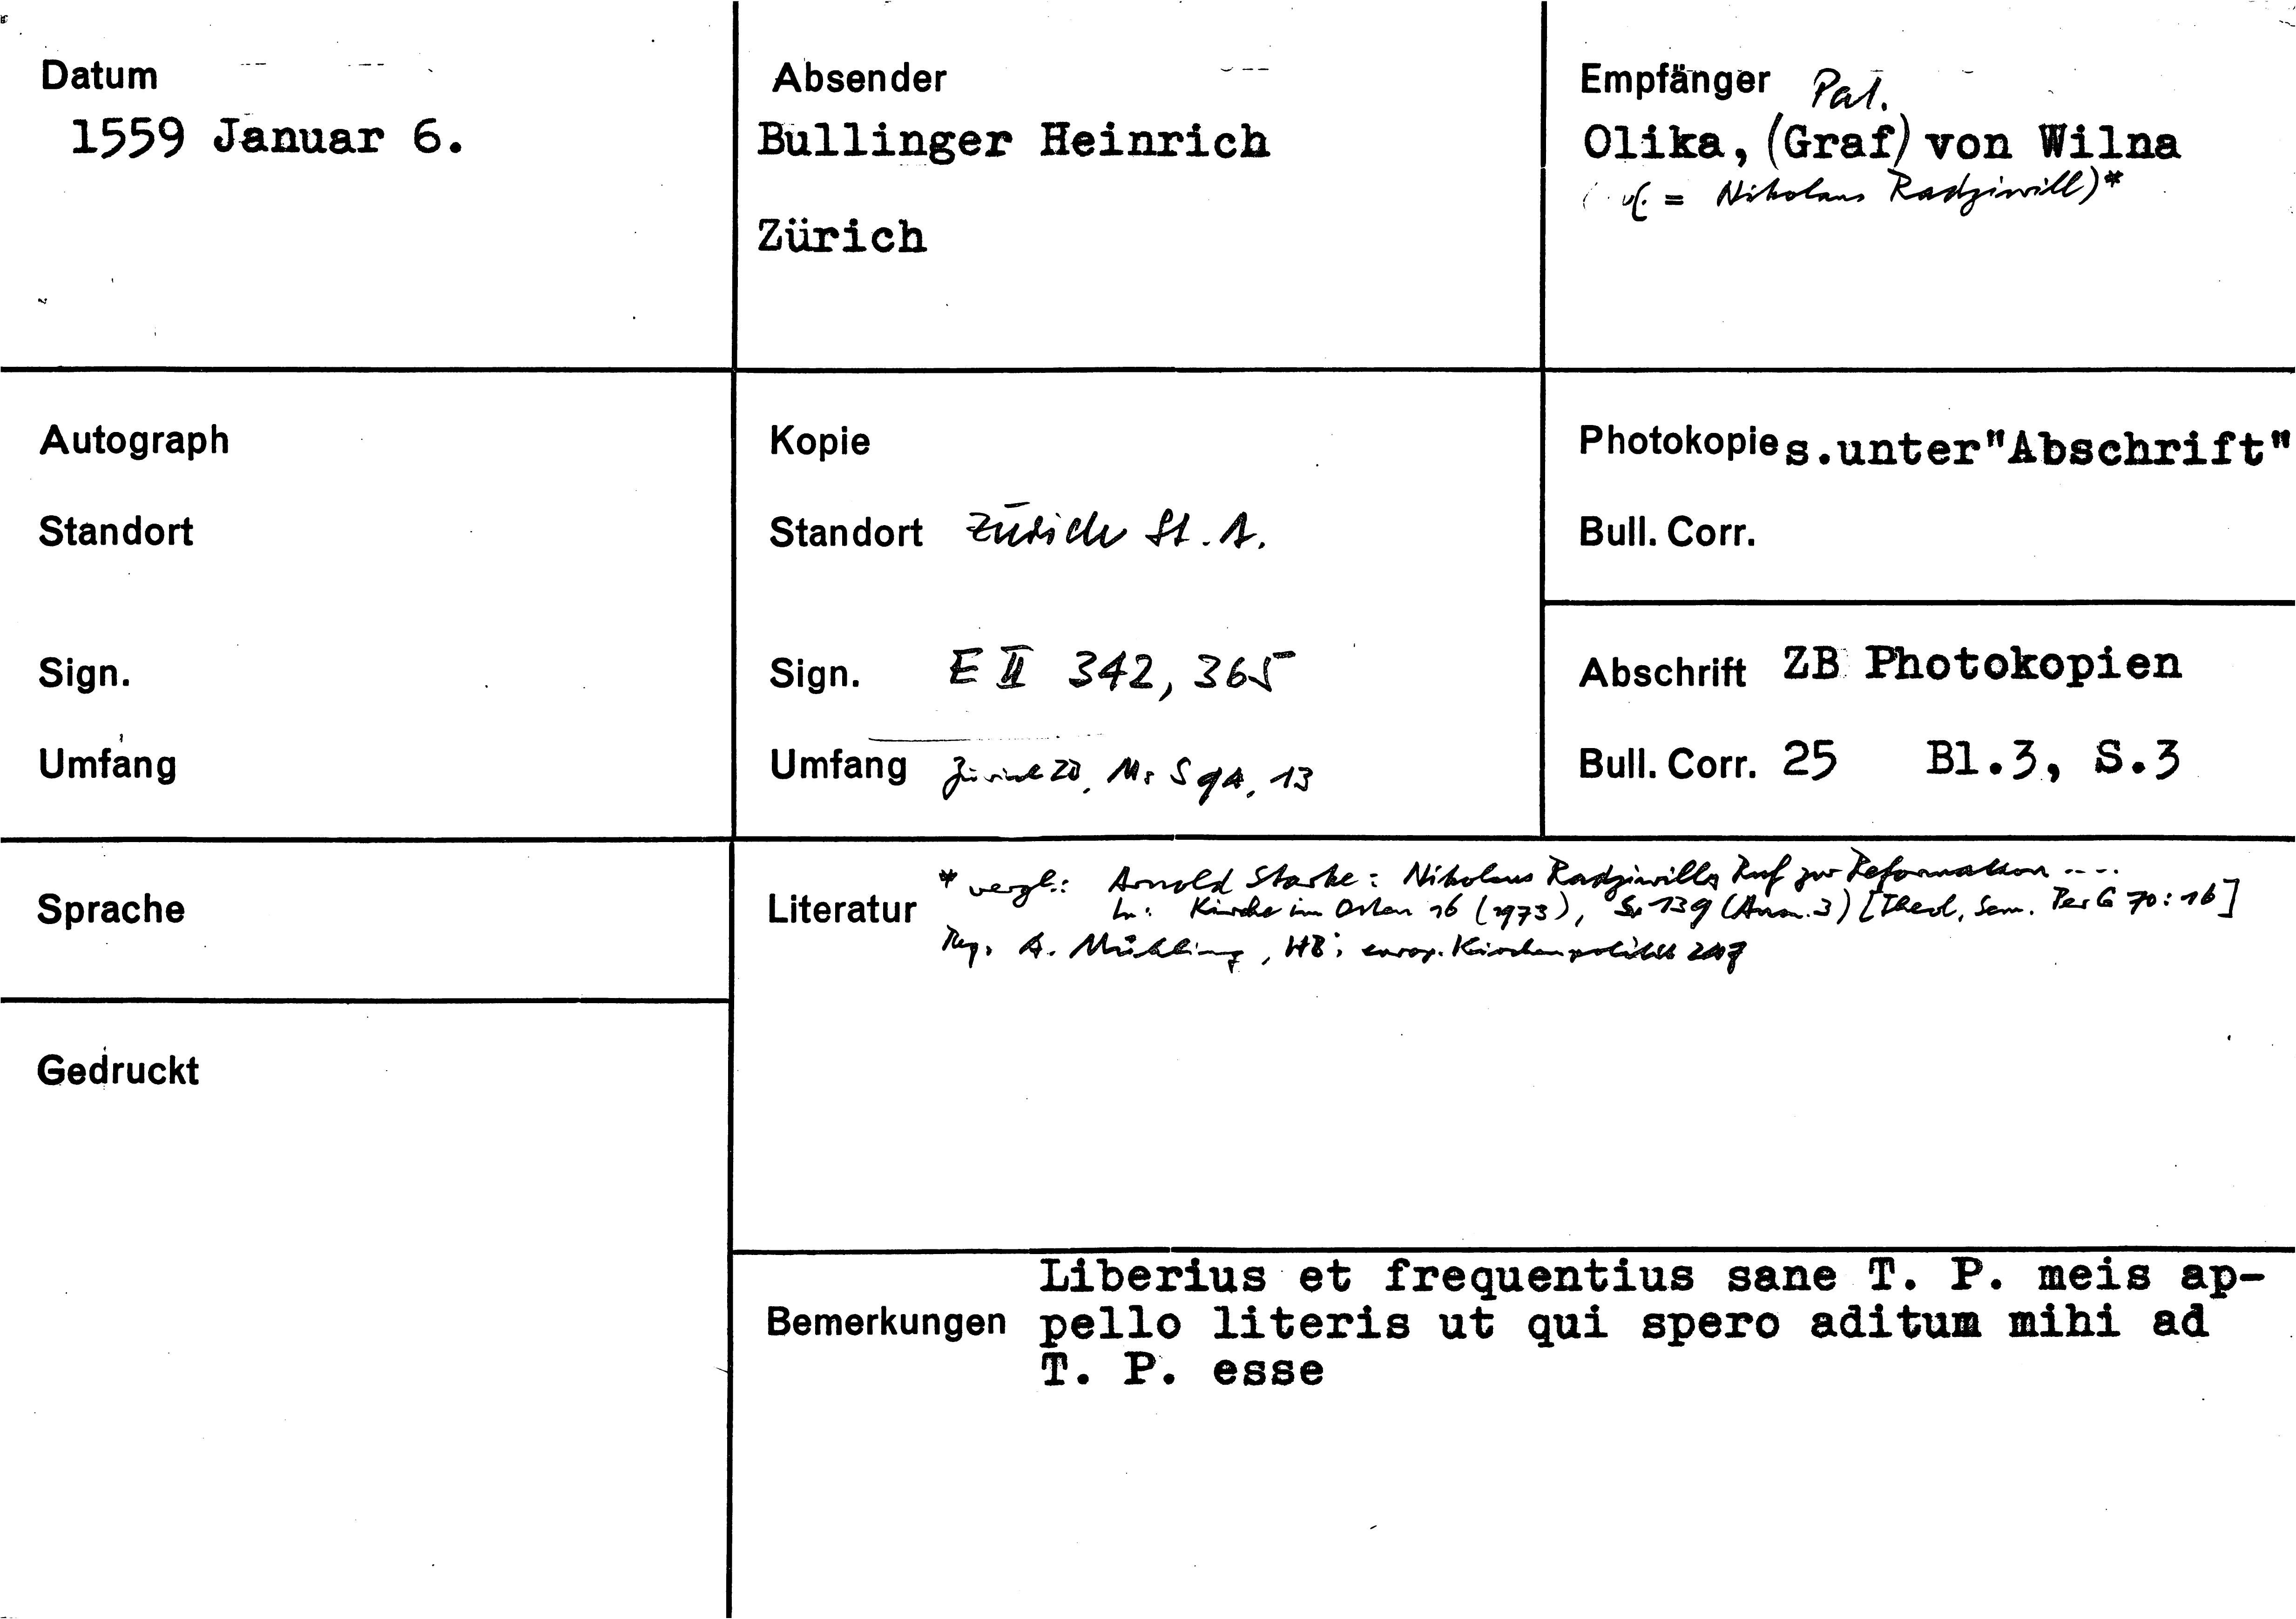 Datum
1559 Januar 6.
Absender
Bullinger Heinrich
Zürich
Empfänger Pal.
Olika, (Graf) von Wilna
= Nikolaus Radziwill)*
Autograph
Standort
Sign.
Umfang
Kopie
Standort Zürich St. A.
Sign. E II 342, 365
Umfang Zürich ZB, Ms S 94, 13
Photokopie s.unter"Abschrift"
Bull. Corr.
Abschrift ZB Photokopien
Bull. Corr. 25 Bl.3, S.3
Sprache
Gedruckt
Literatur * vergl.: Arnold Starke: Nikolaus Radziwills Ruf zur Reformation ....
In: Kirche im Osten 16 (1973), S. 139 (Anm. 3) [Theol. Sem. Per G 70: 16]
Reg. A. Mühling, HB's europ. Kirchenpolitik
Liberius et frequentius sane T. P. meis ap-
Bemerkungen pello literis ut qui spero aditum mihi ad
T. P. esse